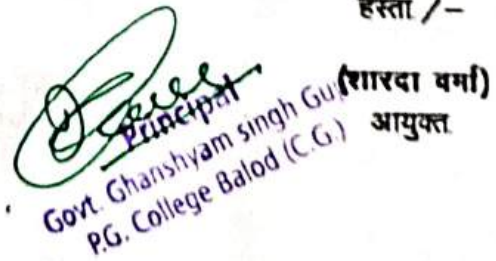 हस्ता /–
(शारदा वर्मा)
आयुक्त
Principal
Govt. Ghanshyam singh Gu
P.G. College Balod (C.G.)